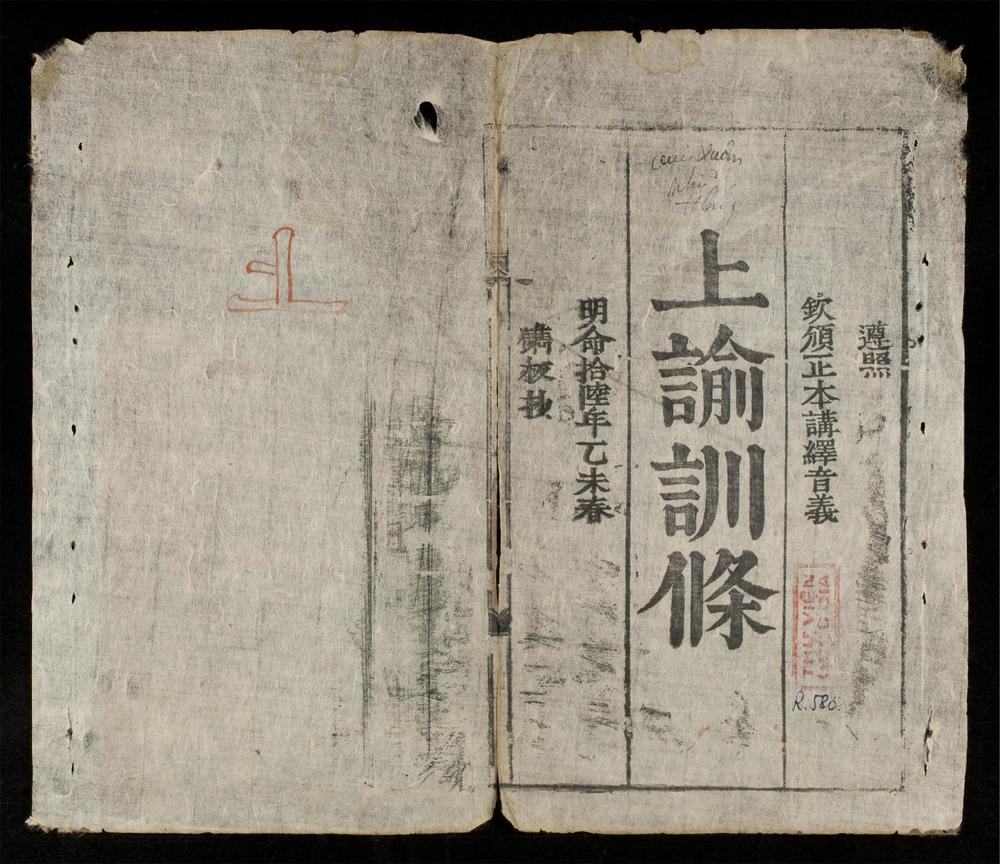 遵照
欽頒正本講繹音義
上諭訓條
明命拾陸年乙未春
板抄
THƯ VIỆN
QUỐC GIA
R.580
上